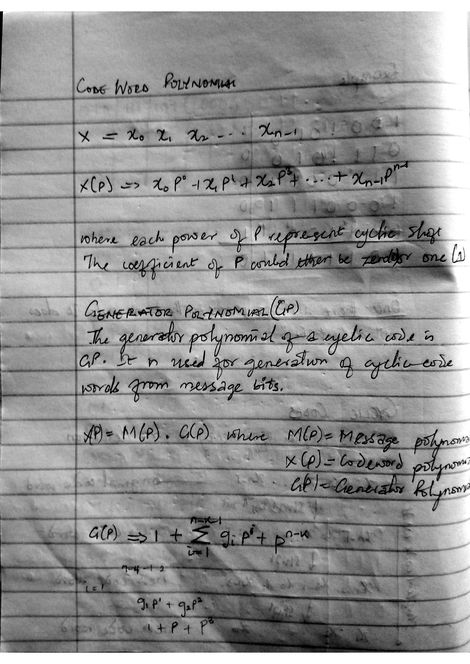 CODE WORD POLYNOMIAL
X = x₀ x₁ x₂ --- xₙ₋₁
X(P) => x₀P⁰ + x₁P¹ + x₂P² + ... + xₙ₋₁Pⁿ⁻¹
where each power of P represent cyclic shift
The coefficient of P could either be zero or one (1)
GENERATOR POLYNOMIAL (GP)
The generator polynomial of a cyclic code is
GP. It is used for generation of cyclic code
words from message bits.
X(P) = M(P) . G(P) where M(P) = Message polynomia
X(P) = Codeword polynomia
G(P) = Generator Polynoma
G(P) => 1 + n-k-1 Σ i=1 gᵢPⁱ + Pⁿ⁻ᵏ
i=1
g₁P¹ + g₂P²
1 + P + P³